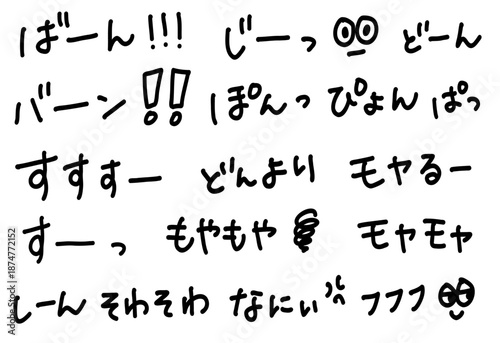 ばーん!!! じーっ どーん
バーン!! ぽんっ ぴょん ぱっ
すすすー どんより モヤるー
すーっ もやもや モヤモヤ
しーん そわそわ なにぃ フフフ
Adobe Stock | #1874772152